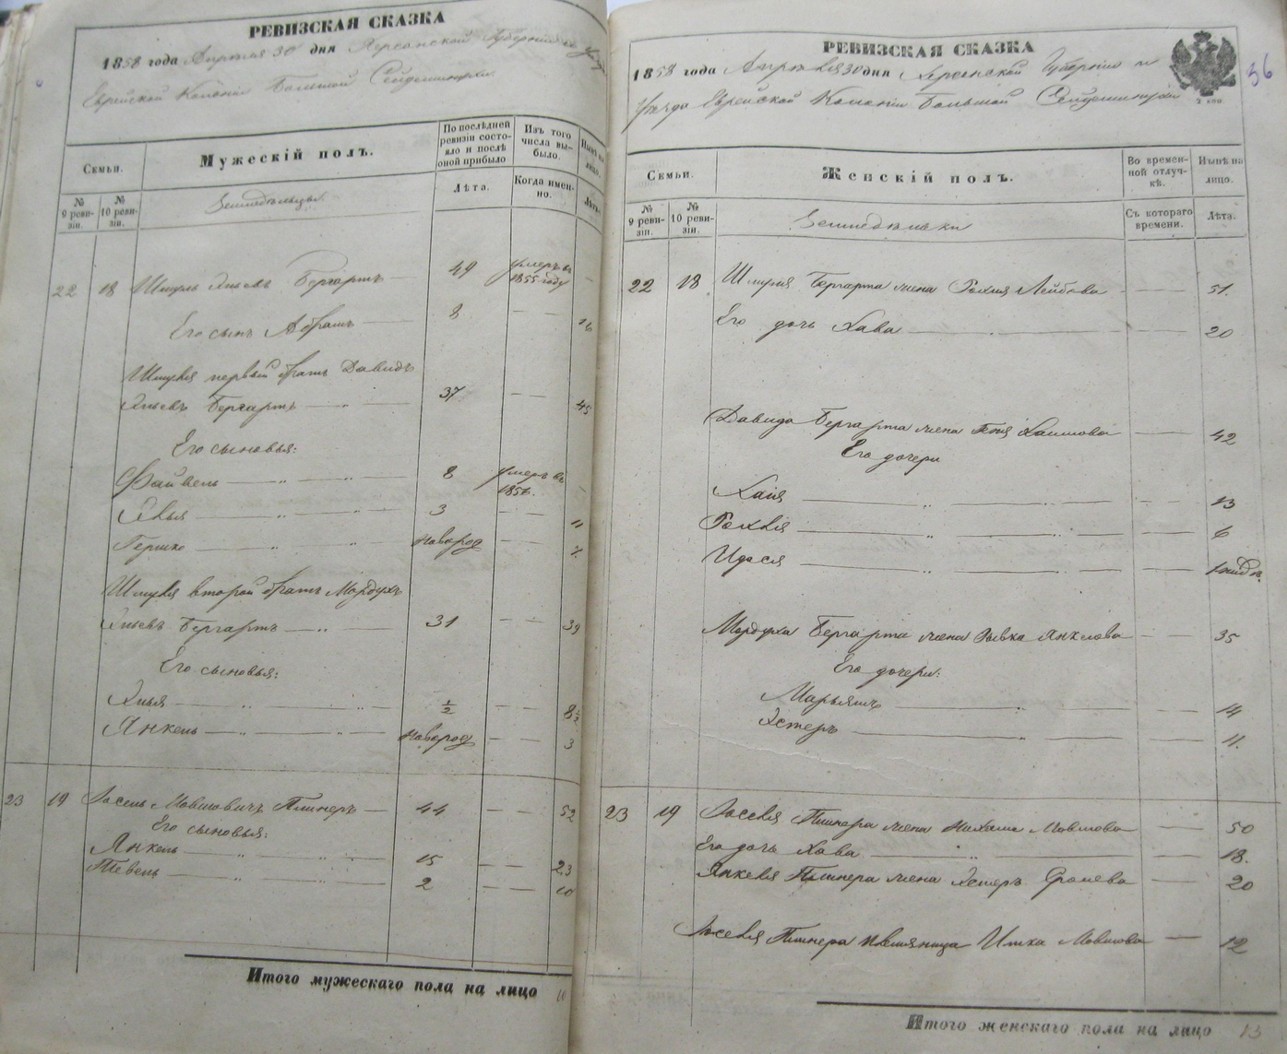 РЕВИЗСКАЯ СКАЗКА
1858 года Апреля 30 дня Херсонской Губернии и Уезда
Еврейской Колонии Большой Сейдеминухи
Семьи.
Мужескій полъ.
По послѣдней ревизіи состояло и послѣ оной прибыло
Изъ того числа выбыло.
№ 9 ревизіи.
№ 10 ревизіи.
Лѣта.
Когда именно.
Лѣта.
Земледѣльцы.
22 18 Шмуль Бергартъ 49 умеръ въ 1855 году
Его сынъ Абрамъ 8 16
Шмуля первый братъ Давидъ
Бергартъ 37 45
Его сыновья:
Файвель 8 умеръ въ
3 11
Гершко новород
Шмуля второй братъ Мордухъ
Бергартъ 31 39
Его сыновья:
½ 8½
Янкель новород 3
23 19 Мовшовичъ 44 52
Его сыновья:
Янкель 15 23
Тевель 2 10
Итого мужескаго пола на лицо 10
РЕВИЗСКАЯ СКАЗКА
1858 года Апрѣля 30 дня Херсонской Губерніи и
Уезда Еврейской Колоніи Большой Сейдеминухи
36
2 коп.
Семьи.
Женскій полъ.
Во временной отлучкѣ.
Нынѣ на лицо.
№ 9 ревизіи.
№ 10 ревизіи.
Съ котораго времени.
Лѣта.
Земледѣлки
22 18 Шмуля Бергарта жена Рохля Лейбова 51.
Его дочь Хава 20
Давида Бергарта жена Хаимова 42
Его дочери
Хая 13
Рохля 6
Идася
Мордуха Бергарта жена Ривка Янкелева 35
Его дочери:
Марьяша 14
Эстеръ 11.
23 19 жена Нихама Мовшова 50
Его дочь Хава 18.
Янкеля жена Эстеръ Сролева 20
племяница Мовшова 12
Итого женскаго пола на лицо 13